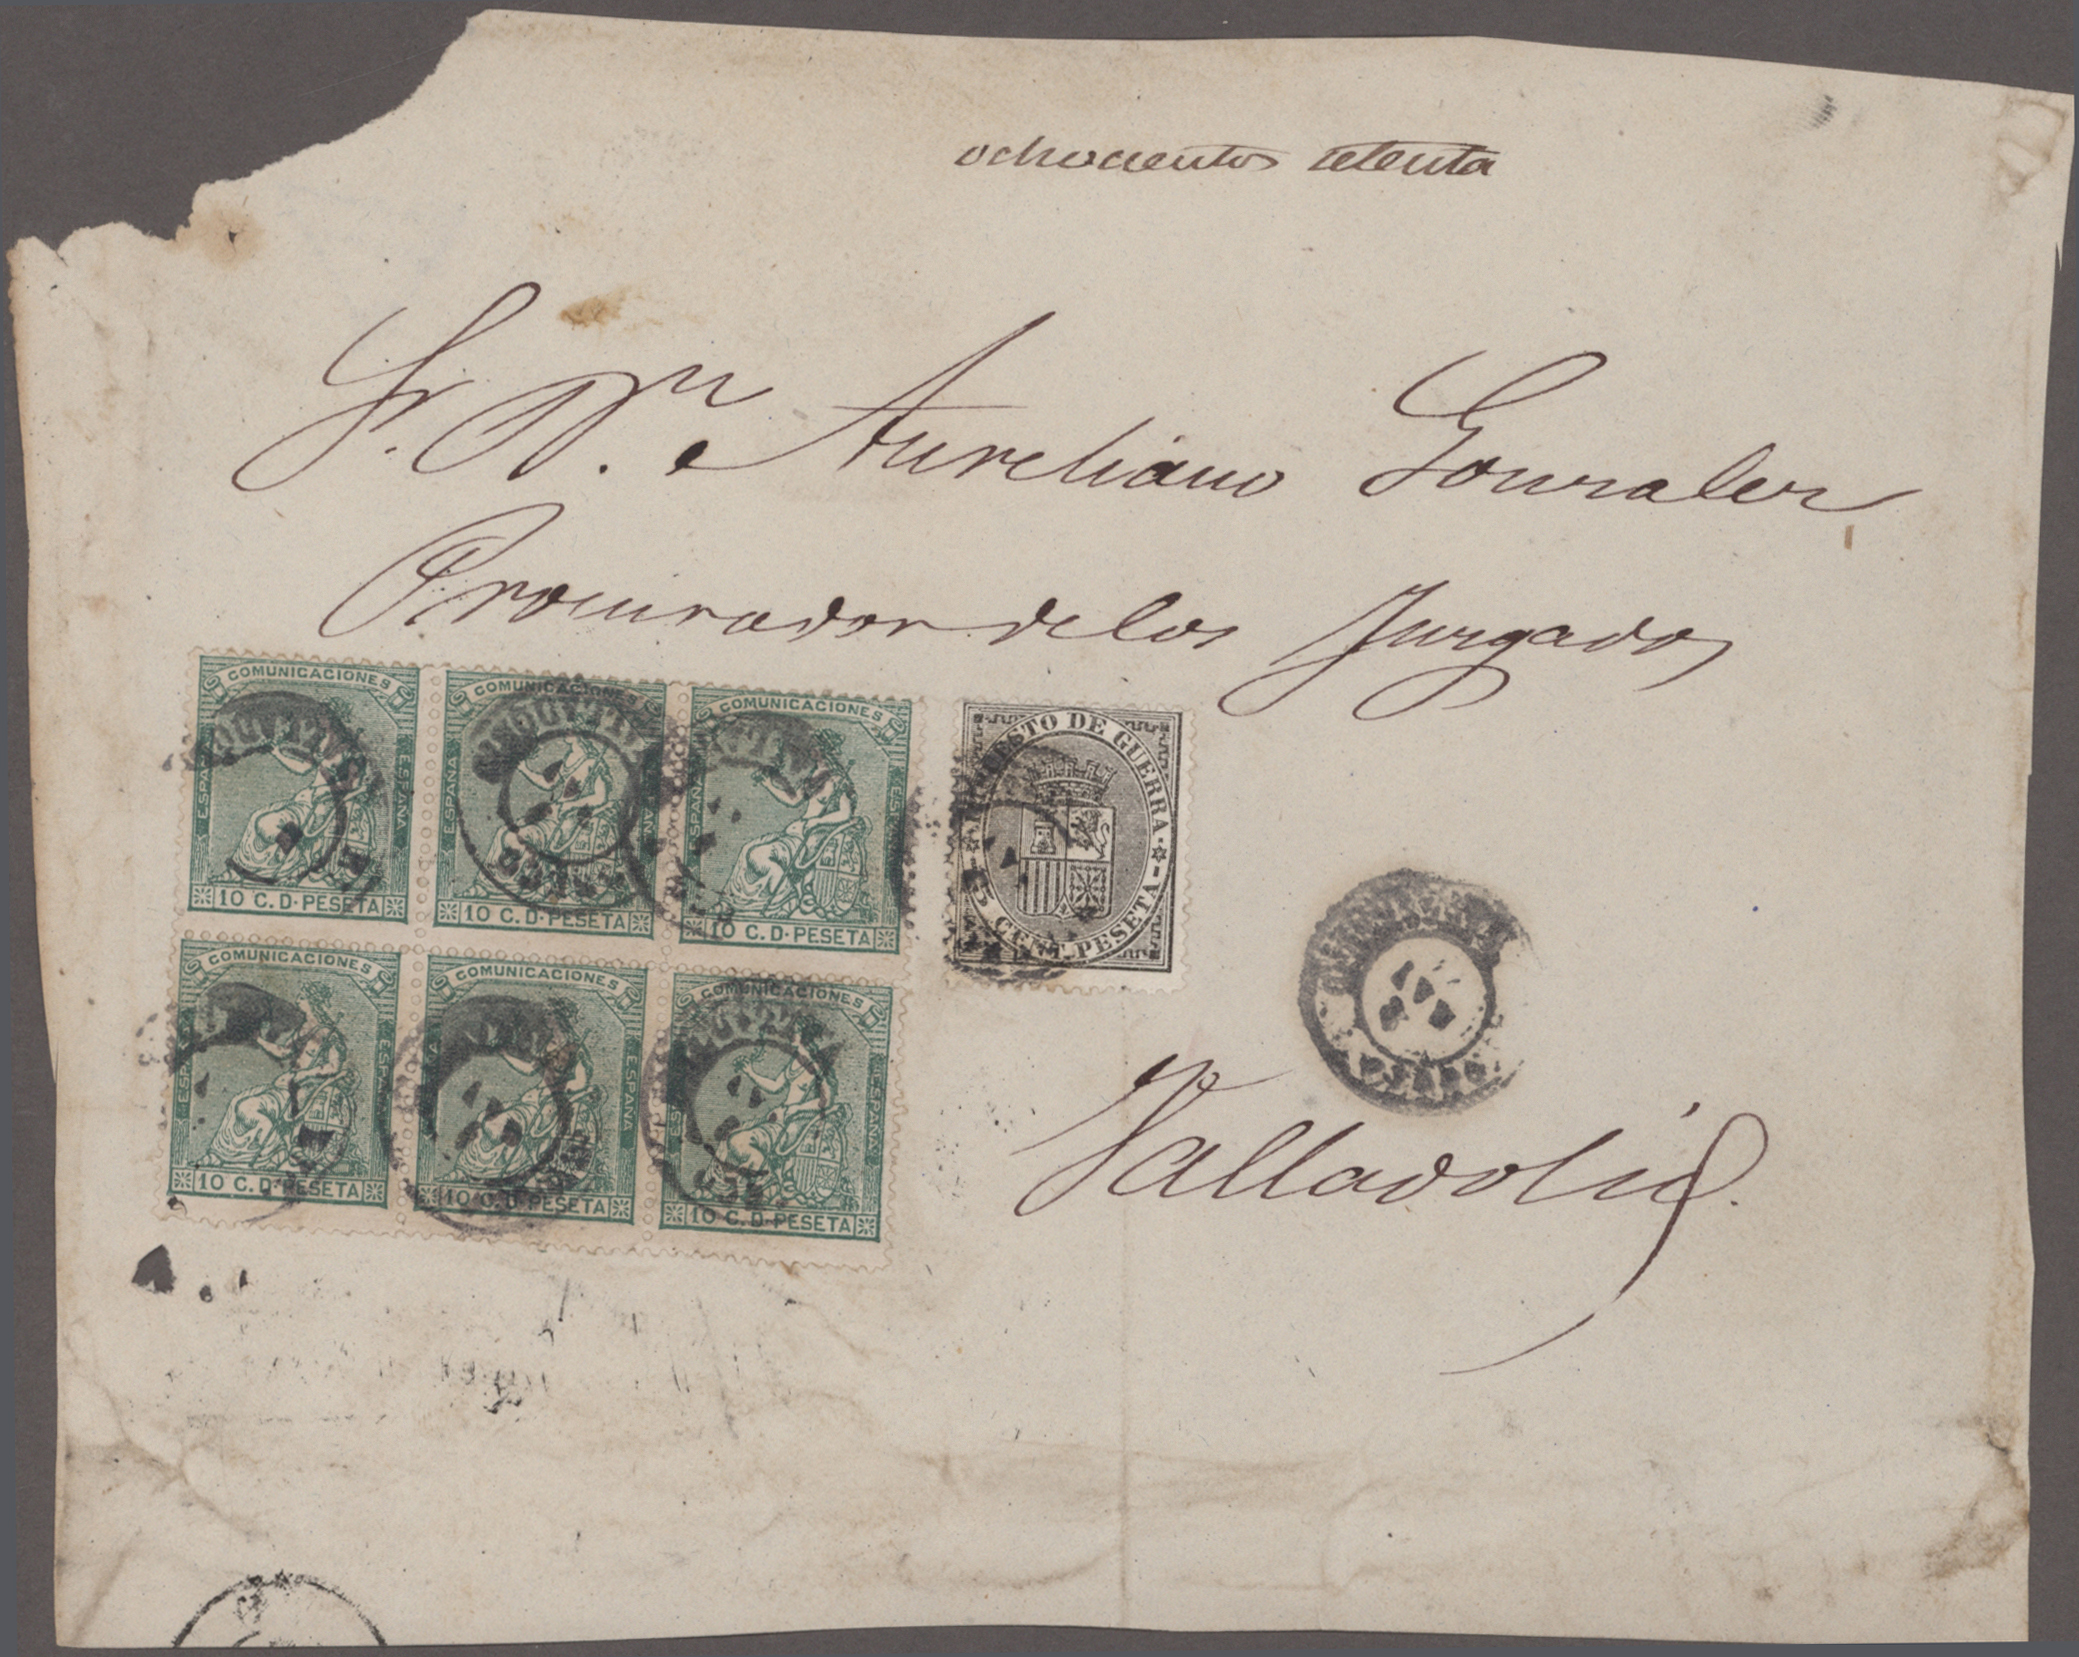 ochocientos setenta
Sr. Dn. Aureliano Gonzalez
Procurador de los Juzgados
COMUNICACIONES COMUNICACIONES COMUNICACIONES
ESPAÑA ESPAÑA ESPAÑA
10 C. D. PESETA 10 C. D. PESETA 10 C. D. PESETA
IMPUESTO DE GUERRA
5 CENT. PESETA
COMUNICACIONES COMUNICACIONES COMUNICACIONES
ESPAÑA ESPAÑA ESPAÑA
10 C. D. PESETA 10 C. D. PESETA 10 C. D. PESETA
Valladolid.